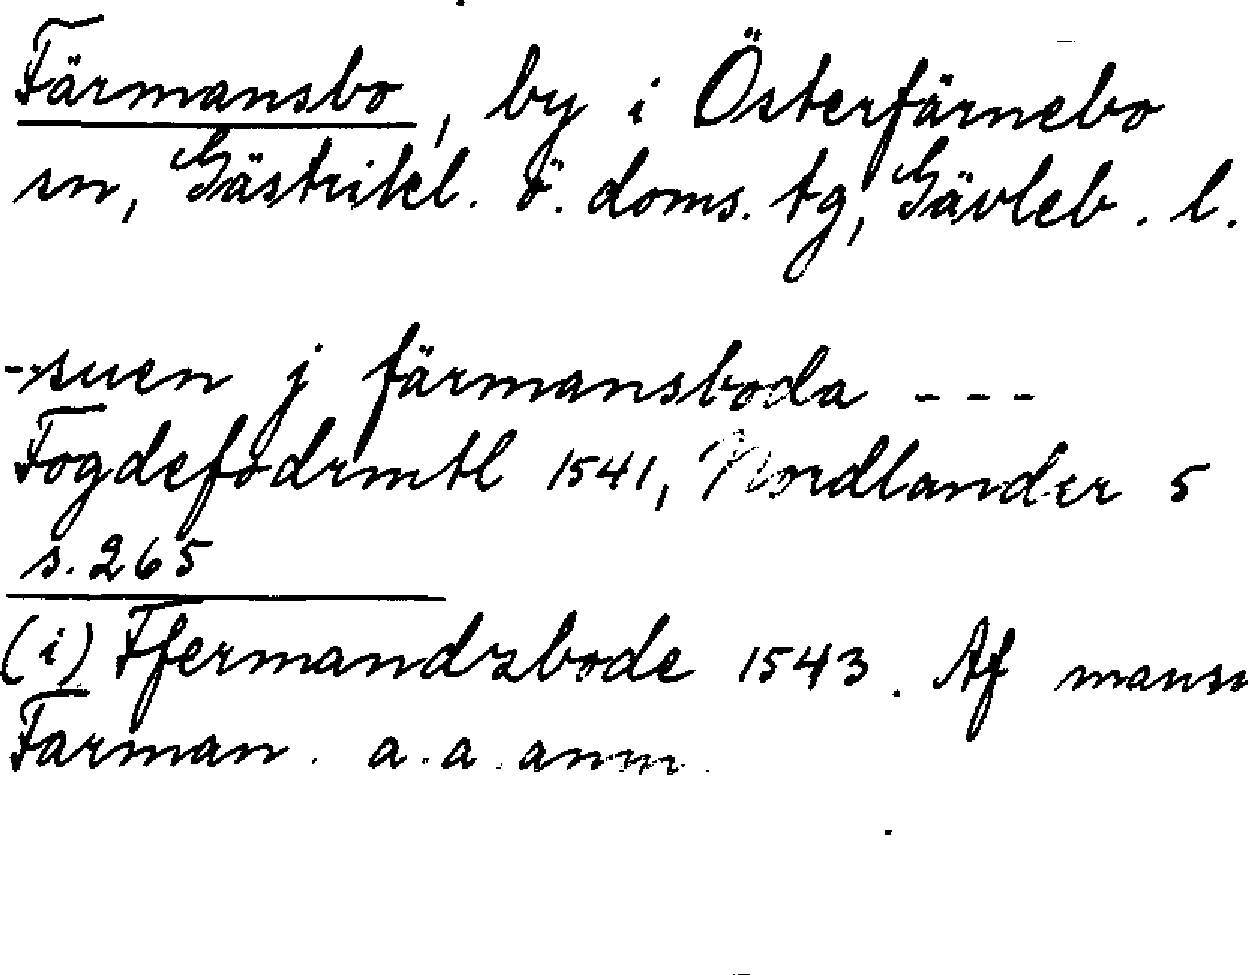 Färmansbo, by i Österfärnebo
sn, Gästrikl. ö. doms. tg, Gävleb. l.
-suen j färmansboda ---
Fogdefodrmtl 1541, Nordlander 5
s. 265
(i) Ffermandzbode 1543. Af mansn
Farman. a.a. anm.